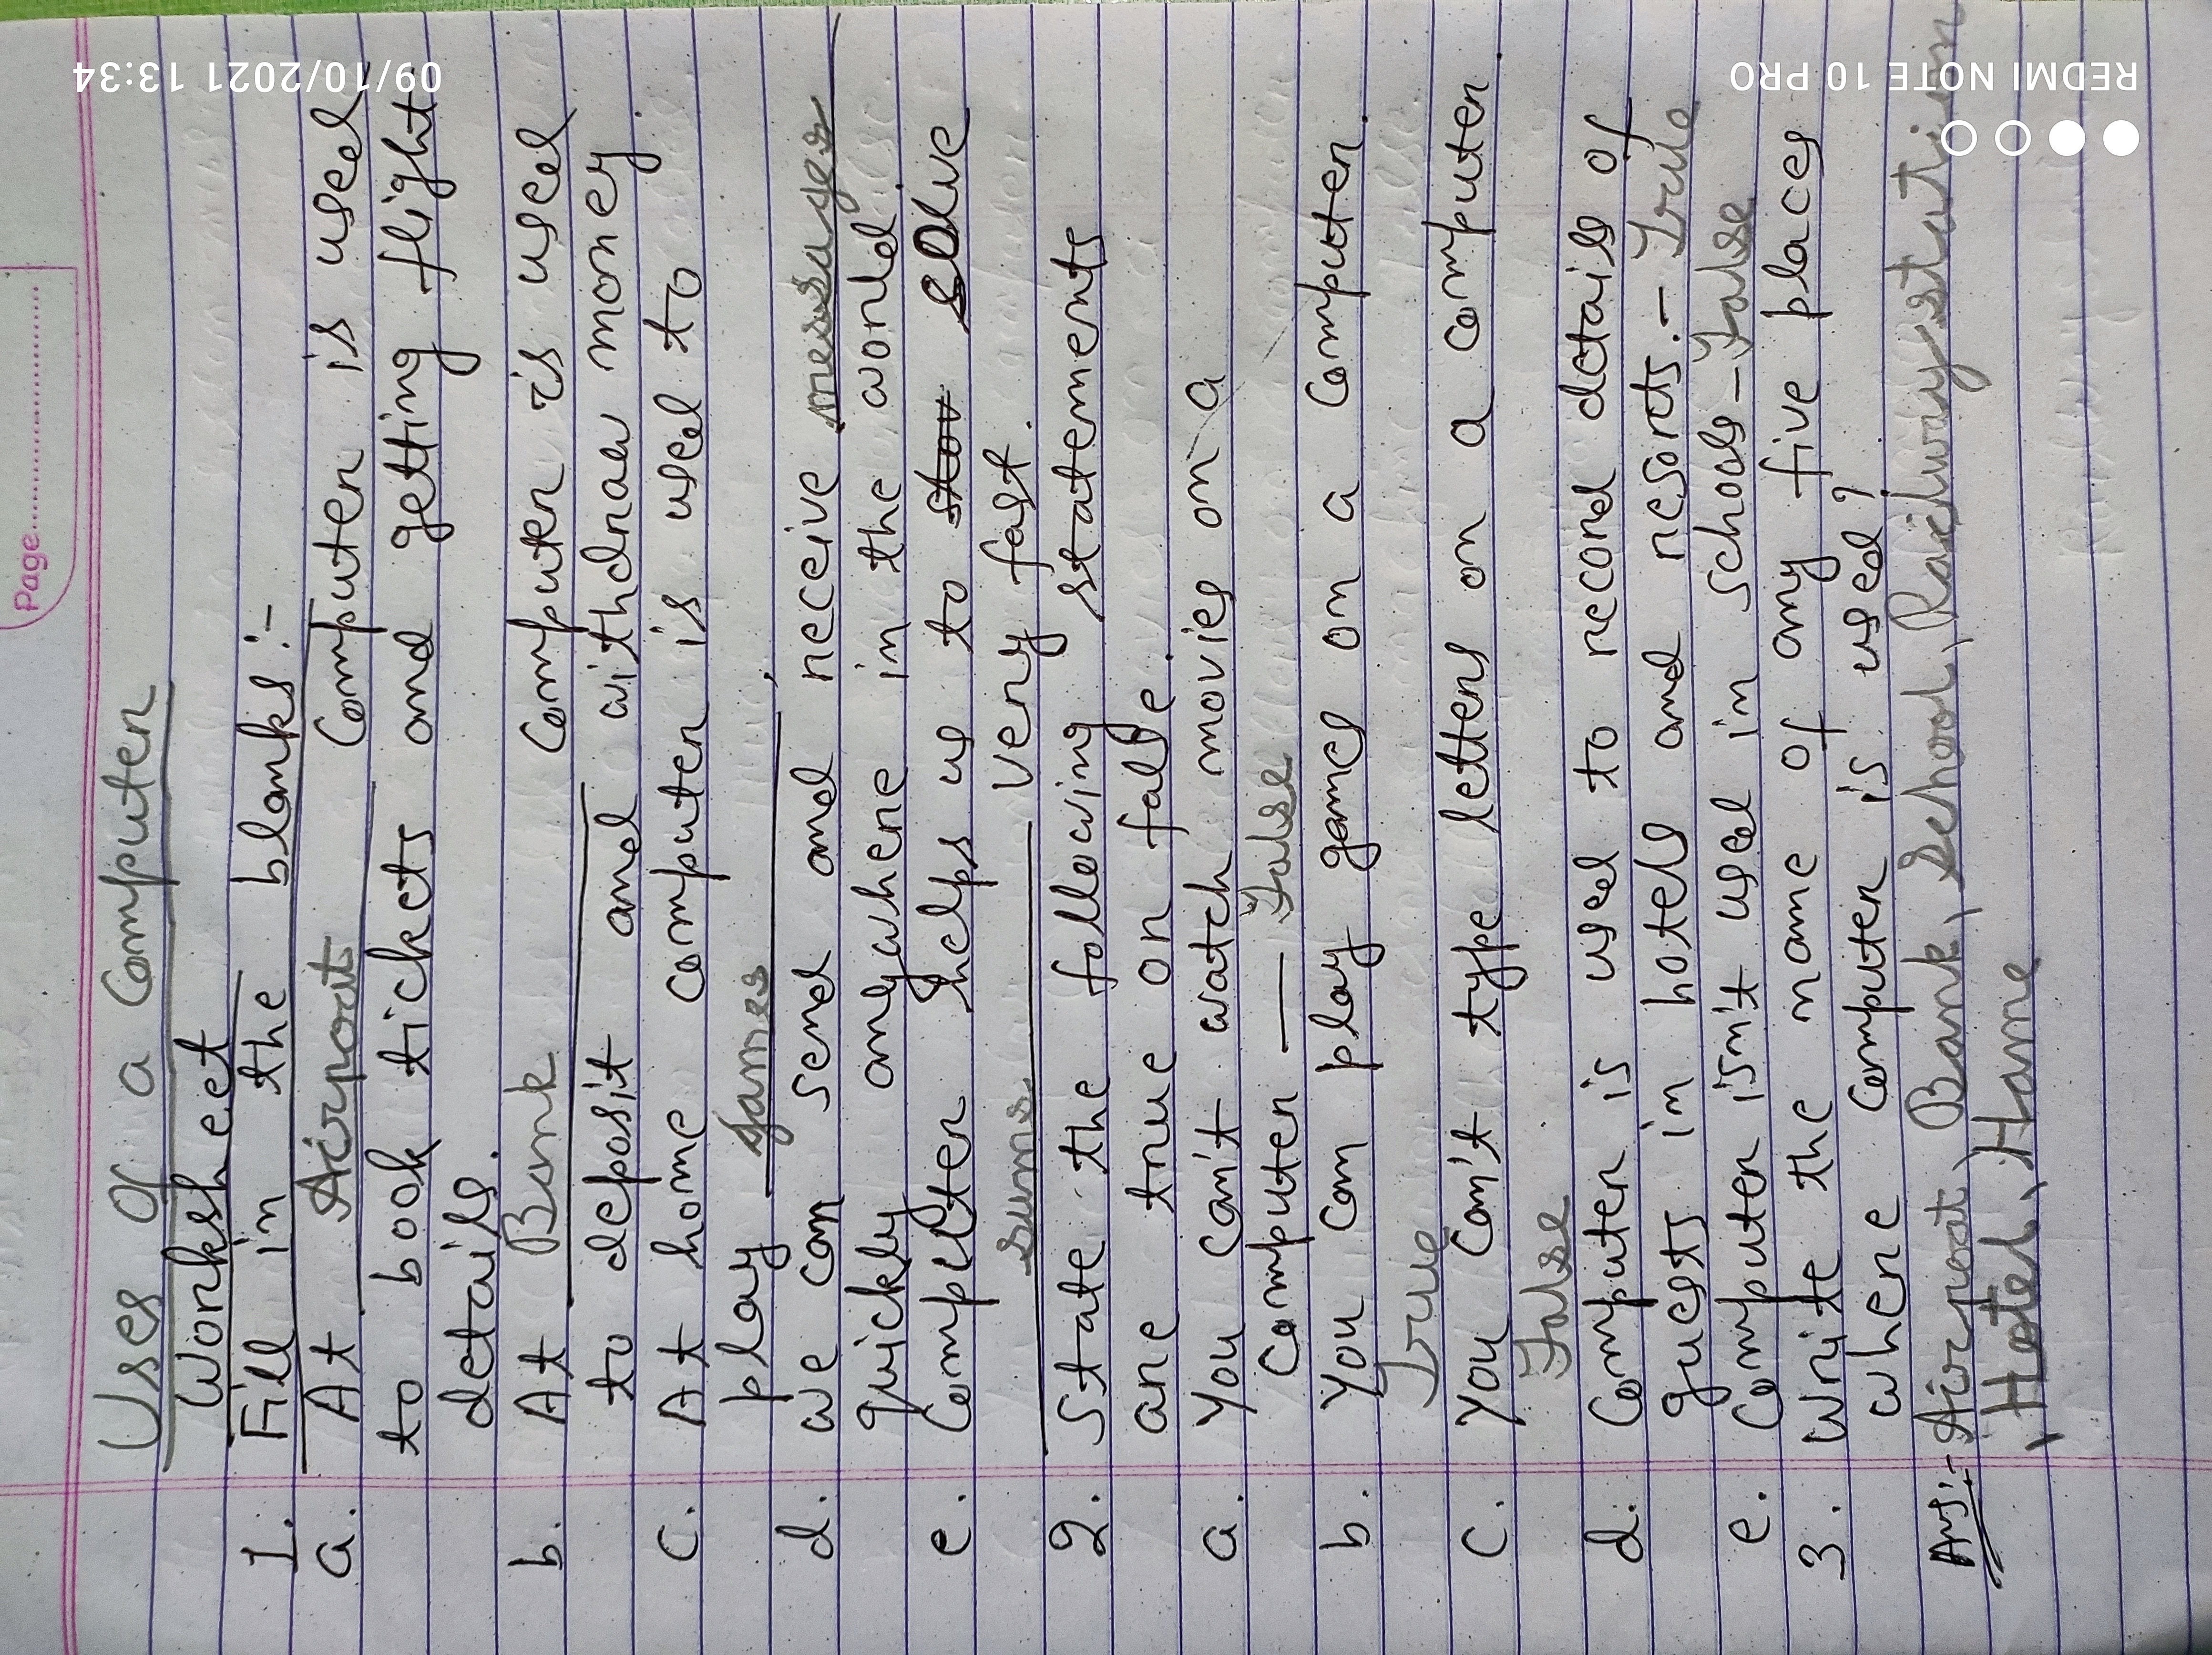 Page
Uses of a Computer
Worksheet
1. Fill in the blanks:-
a. At Airpoat Computer is used
to book tickets and getting flight
details.
b. At Bank Computer is used
to deposit and withdraw money.
c. At home computer is used to
play games.
d. we can send and receive messages
quickly anywhere in the world.
e. Computer helps us to solve
sums very fast.
2. State the following statements
are true or false.
a. You can't watch movies on a
Computer — False
b. You can play games on a Computer.
True
c. You can't type letters on a computer.
False
d. Computer is used to record details of
guests in hotels and resorts.- True
e. Computer isn't used in schools-False
3. Write the name of any five places
where computer is used?
Ans:- Airpoat, Bank, School, Railwaystation
, Hotel, Hame
09/10/2021 13:34
REDMI NOTE 10 PRO